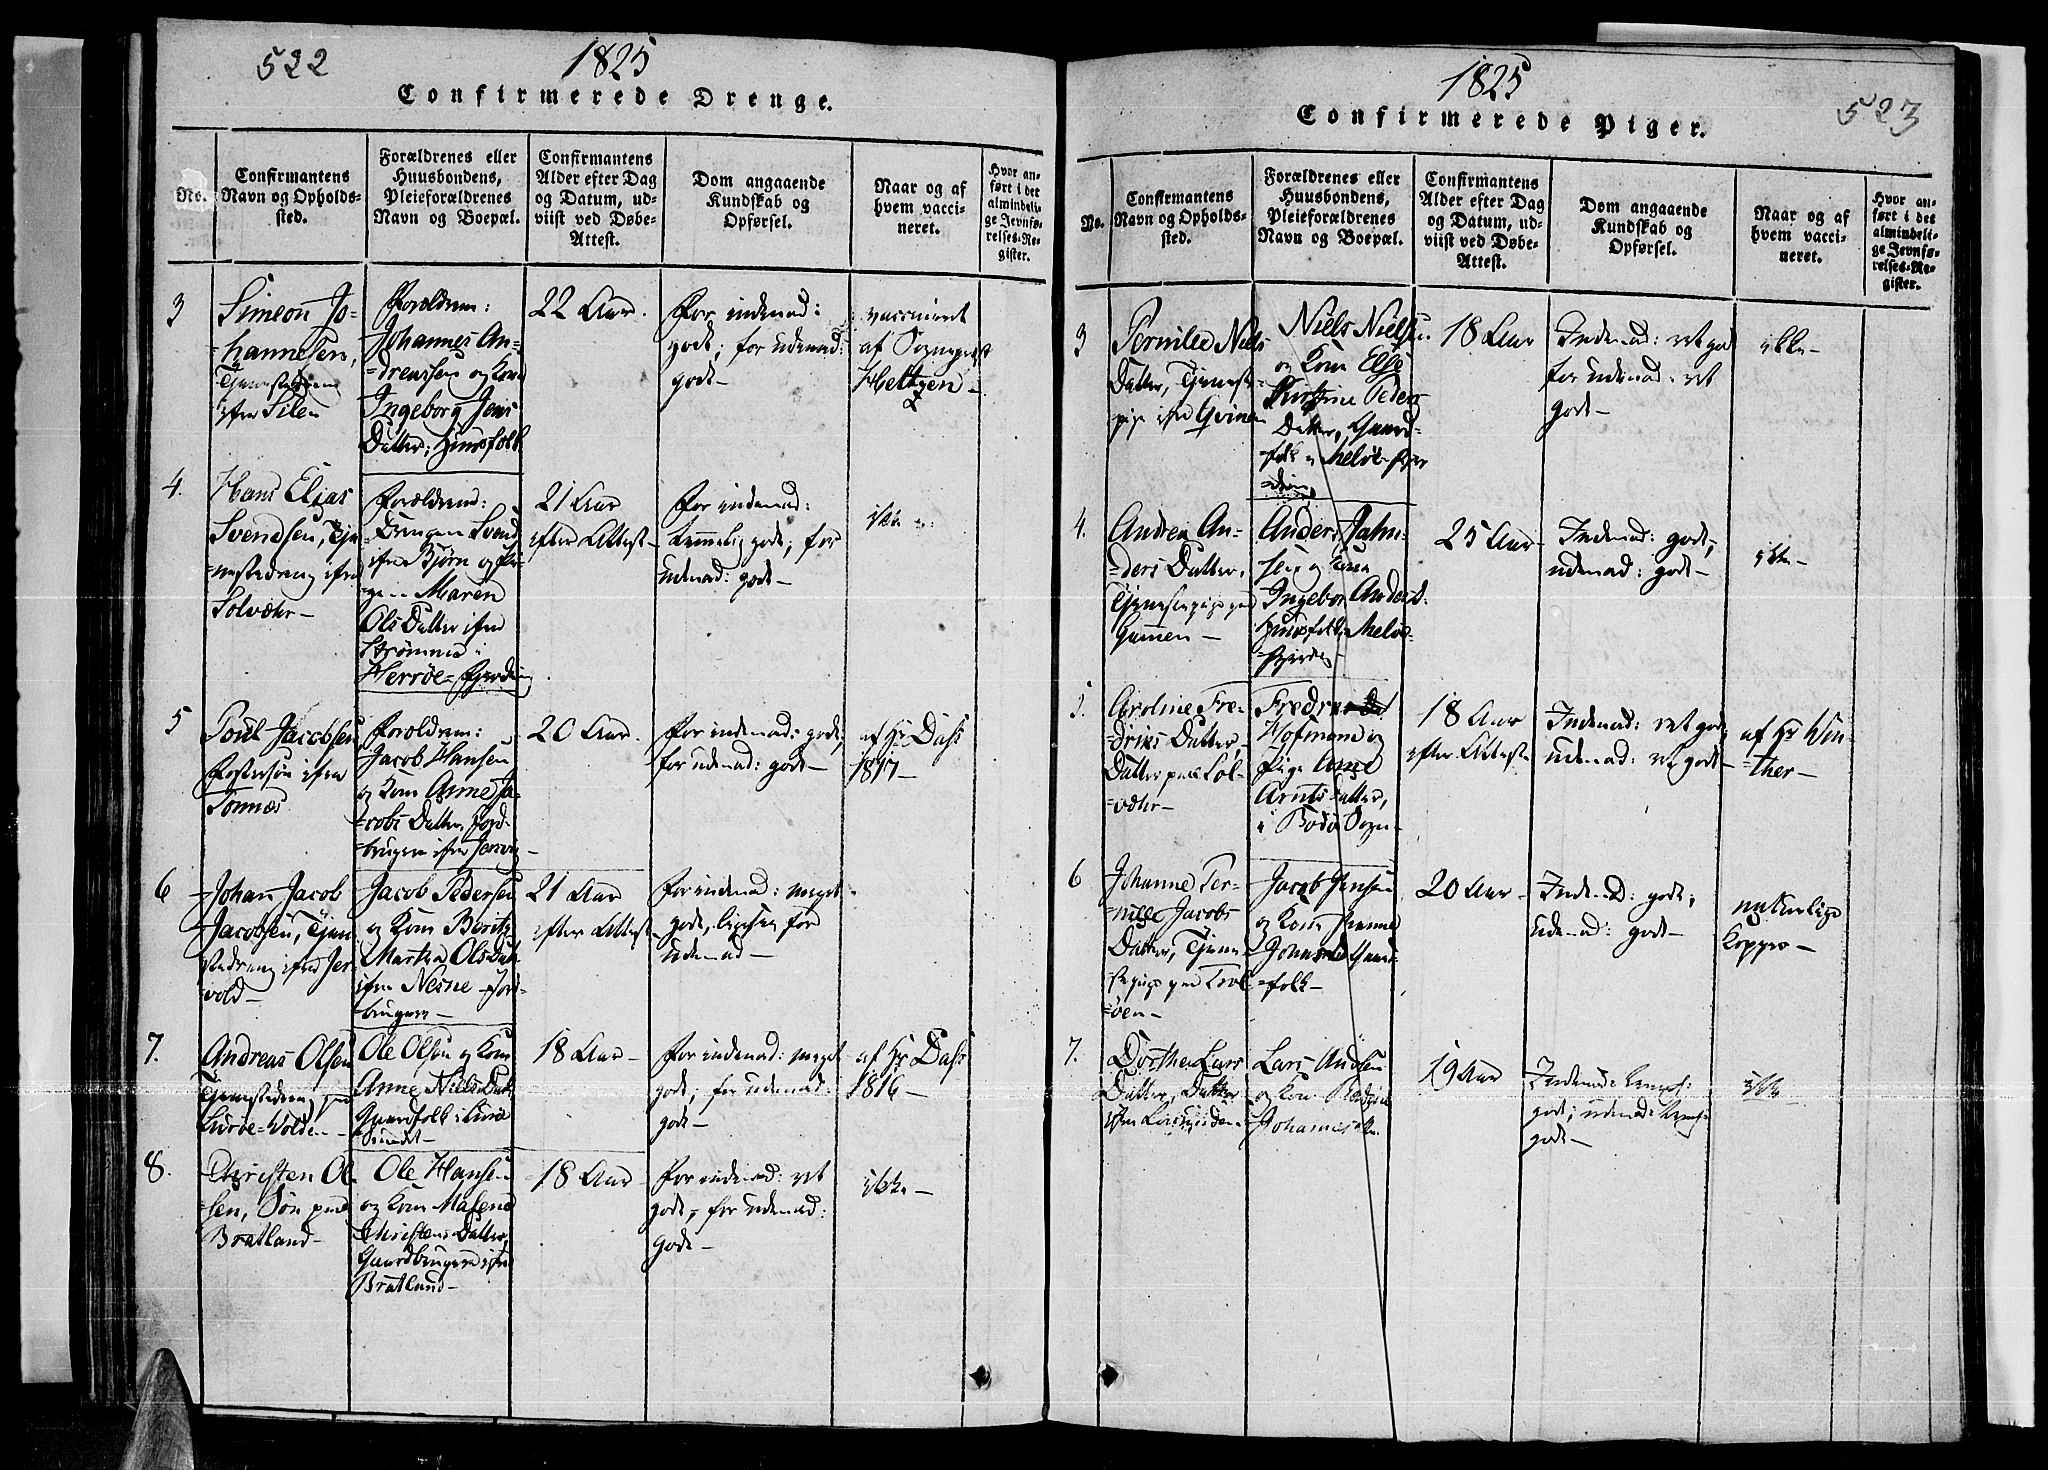 522
1825
Confirmerede Drenge.
No.
Confirmantens
Navn og Opholds-
sted.
Forældrenes eller
Huusbondens,
Pleieforældrenes
Navn og Boepæl.
Confirmantens
Alder efter Dag
og Datum, ud-
viist ved Døbe-
Attest.
Dom angaaende
Kundskab og
Opførsel.
Naar og af
hvem vacci-
neret.
Hvor an-
ført i det
almindeli-
ge Jevnfø-
relses-Re-
gister.
3
Simeon Jo-
hannesen,
Tjenestedreng
ifra Silen
Forældrene:
Johannes An-
dreassen og Kone
Ingeborg Jens
Datter, Huusfolk
22 Aar.
For indenad:
godt; for udenad:
godt-
vaccineret
af Sognepræst
Heltzen-
4.
Hans Elias
Svendsen, Tje-
nestedreng ifra
Solvær-
Forældrene:
Drengen Svend
ifra Bjørn og Pi-
gen Maren
Ols Datter ifra
Strømmen i
Herrøe-Fjerding
21 Aar
efter Attest-
For indenad:
temmelig godt; for
udenad: godt-
ikke
5
Poul Jacobsen
Fostersøn ifra
Tonnes
Forældrene:
Jacob Hansen
og Kone Anne Ja-
cobs Datter, Jord-
brugere ifra
20 Aar.
For indenad: godt;
for udenad: godt-
af Hr Dass
1817-
6
Johan Jacob
Jacobsen, Tjene-
stedreng ifra
vold-
Jacob Pedersen
og Kone Berith
Martha Ols Dat.
ifra Nesne Jord-
brugere-
21 Aar
efter Attest
For indenad: meget
godt, ligesaa for
udenad-
7.
Andreas Olsen
Tjenestedreng paa
Lurøe-Volden-
Ole Olsen og Kone
Anne Niels Dat.
Gaardfolk i
Sundet-
18 Aar-
For indenad: meget
godt; for udenad:
godt-
af Hr Dass
1816-
8.
Christen Ol-
sen, Søn paa
Bratland-
Ole Hansen
og Kone Malene
Christens Datter,
Gaardbrugere ifra
Bratland-
18 Aar-
For indenad: ret
godt, for udenad:
godt-
ikke-
1825
523
Confirmerede Piger.
No.
Confirmantens
Navn og Opholds-
sted.
Forældrenes eller
Huusbondens,
Pleieforældrenes
Navn og Boepæl.
Confirmantens
Alder efter Dag
og Datum, ud-
viist ved Døbe-
Attest.
Dom angaaende
Kundskab og
Opførsel.
Naar og af
hvem vacci-
neret.
Hvor an-
ført i det
almindeli-
ge Jevnfø-
relses-Re-
gister.
3
Pernille Niels
Datter, Tjeneste-
pige ifra
Niels Nielsen
og Kone Else
Kirstine Peders
Datter, Gaard-
folk i Meløe-Fjer-
ding
18 Aar
Indenad: ret godt
for udenad: ret
godt-
ikke-
4.
Andrea An-
ders Datter,
Tjenestepige paa
Gunnen-
Anders
sen og Kone
Ingebor Anders D.
Huusfolk i Meløe-
Fjerding-
25 Aar-
Indenad: godt,
udenad: godt-
ikke-
5.
Caroline Fre-
driks Datter,
Datter paa Sol-
vær-
Fredrik
Hofmand og
Pige Anne
Arnts Datter,
i Bodø Sogn-
18 Aar
efter Attest-
Indenad: ret godt,
udenad: ret godt-
af Hr Win-
ther-
6
Johanne Per-
nille Jacobs
Datter, Tjene-
stepige paa
øen-
Jacob Jensen
og Kone
Gaard-
folk-
20 Aar-
Indenad: godt;
udenad: godt-
naturlige
Kopper-
7.
Dorthea Lars
Datter, Datter
Lars Andersen
og Kone
Johannes
19 Aar
Indenad:
godt; udenad:
godt-
ikke